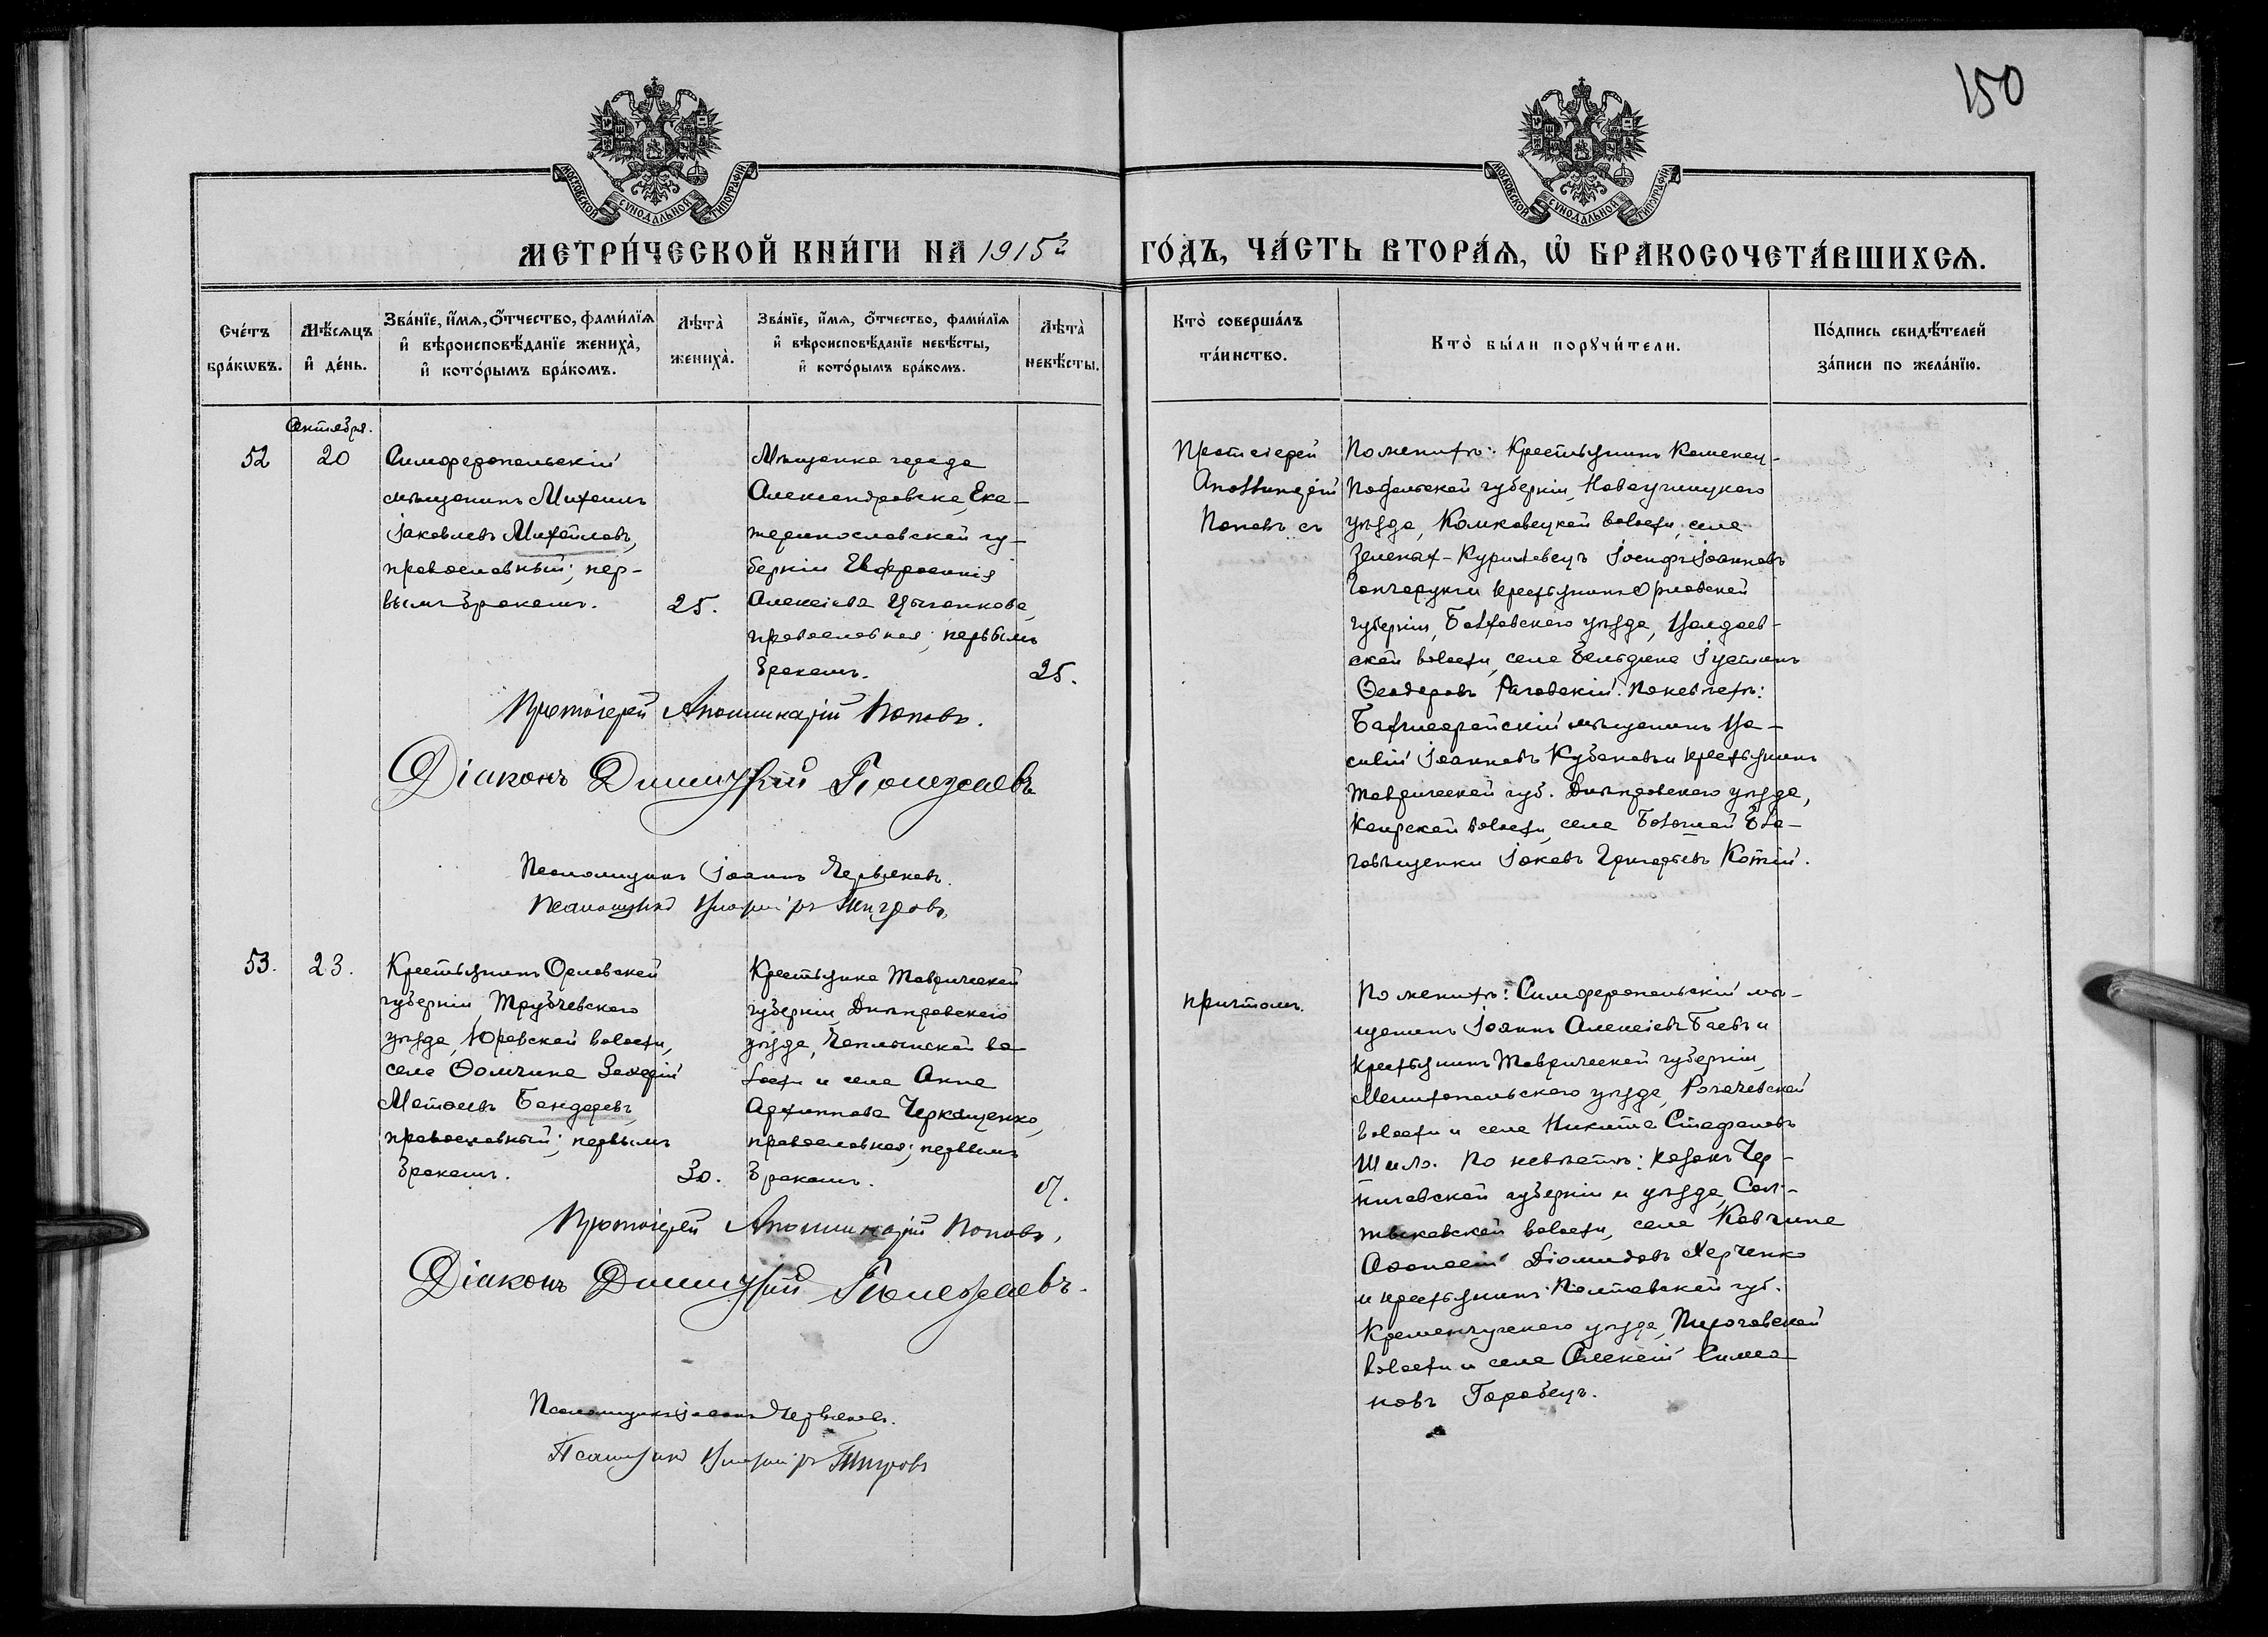 150
МОСКОВСКОЙ СѴНОДАЛЬНОЙ ТИПОГРАФІИ
МОСКОВСКОЙ СѴНОДАЛЬНОЙ ТИПОГРАФІИ
МЕТРИ́ЧЕСКОЙ КНИ́ГИ НА 1915й
ГО́ДЪ, ЧА́СТЬ ВТОРА́Ѧ, Ѡ҆ БРАКОСОЧЕТА́ВШИХСѦ.
Сче́тъ бра́кѡвъ.
Мѣ́сѧцъ и҆ де́нь.
Зва́нїе, и҆́мѧ, ѻ҆́тчество, фами́лїѧ
и҆ вѣроисповѣ́данїе жениха̀,
и҆ кото́рымъ бра́комъ.
Лѣта̀ жениха̀.
Зва́нїе, и҆́мѧ, ѻ҆́тчество, фами́лїѧ
и҆ вѣроисповѣ́данїе невѣ́сты,
и҆ кото́рымъ бра́комъ.
Лѣта̀ невѣ́сты.
Кто̀ соверша́лъ
та́инство.
Кто̀ бы́ли порꙋчи́тели.
По́дпись свидѣ́телей
за́писи по жела́нїю.
Октября.
52
20
Симферопольскій
мѣщанинъ Михаилъ
Іаковлевъ Михайловъ,
православный; пер-
вымъ бракомъ.
25.
Мѣщанка города
Александровска, Ека-
теринославской гу-
берніи Евфросинія
Алексіева Цыганкова,
православная; первымъ
бракомъ.
25.
Протоіерей
Аполлинарій
Поповъ съ
По женихѣ: Крестьянинъ Каменец-
Подольской губерніи, Новоушицкаго
уѣзда, волости, села
Зеленыхъ-Куриловецъ Іосифъ Іоанновъ
Гончарукъ и крестьянинъ Орловской
губерніи, Болховскаго уѣзда,
ской волости, села Іустинъ
Ѳеодоровъ По невѣстѣ:
Бахчисарайскій мѣщанинъ Ва-
силій Іоанновъ и крестьянинъ
Таврической губ. Днѣпровскаго уѣзда,
Каирской волости, села Большой Бла-
говѣщенки Іаковъ Григорьевъ Котій.
Протоіерей Аполлинарій Поповъ.
Діаконъ Димитрій Полежаевъ
Псаломщикъ Іоаннъ Червяковъ.
Псаломщикъ Тигровъ
53.
23.
Крестьянинъ Орловской
губерніи, Трубчевскаго
уѣзда, Юровской волости,
села Ѳомчина Захарій
Матѳеевъ Бондаревъ,
православный; первымъ
бракомъ.
30.
Крестьянка Таврической
губерніи, Днѣпровскаго
уѣзда, Чаплинской во-
лости и села Анна
Архиппова Черкащенко,
православная; первымъ
бракомъ.
17.
причтомъ.
По женихѣ: Симферопольскій мѣ-
щанинъ Іоаннъ Алексіевъ Баевъ и
крестьянинъ Таврической губерніи,
Мелитопольскаго уѣзда, Рогачевской
волости и села Никита Стефановъ
Шило. По невѣстѣ: козакъ Чер-
ниговской губерніи и уѣзда, Сал-
тыковской волости, села Ковчина
Аѳанасій Діомидовъ Харченко
и крестьянинъ Полтавской губ.
Кременчугскаго уѣзда, Пироговской
волости и села Алексій Симео-
новъ Горобецъ.
Протоіерей Аполлинарій Поповъ,
Діаконъ Димитрій Полежаевъ.
Псаломщикъ Іоаннъ Червяковъ.
Псаломщикъ Тигровъ